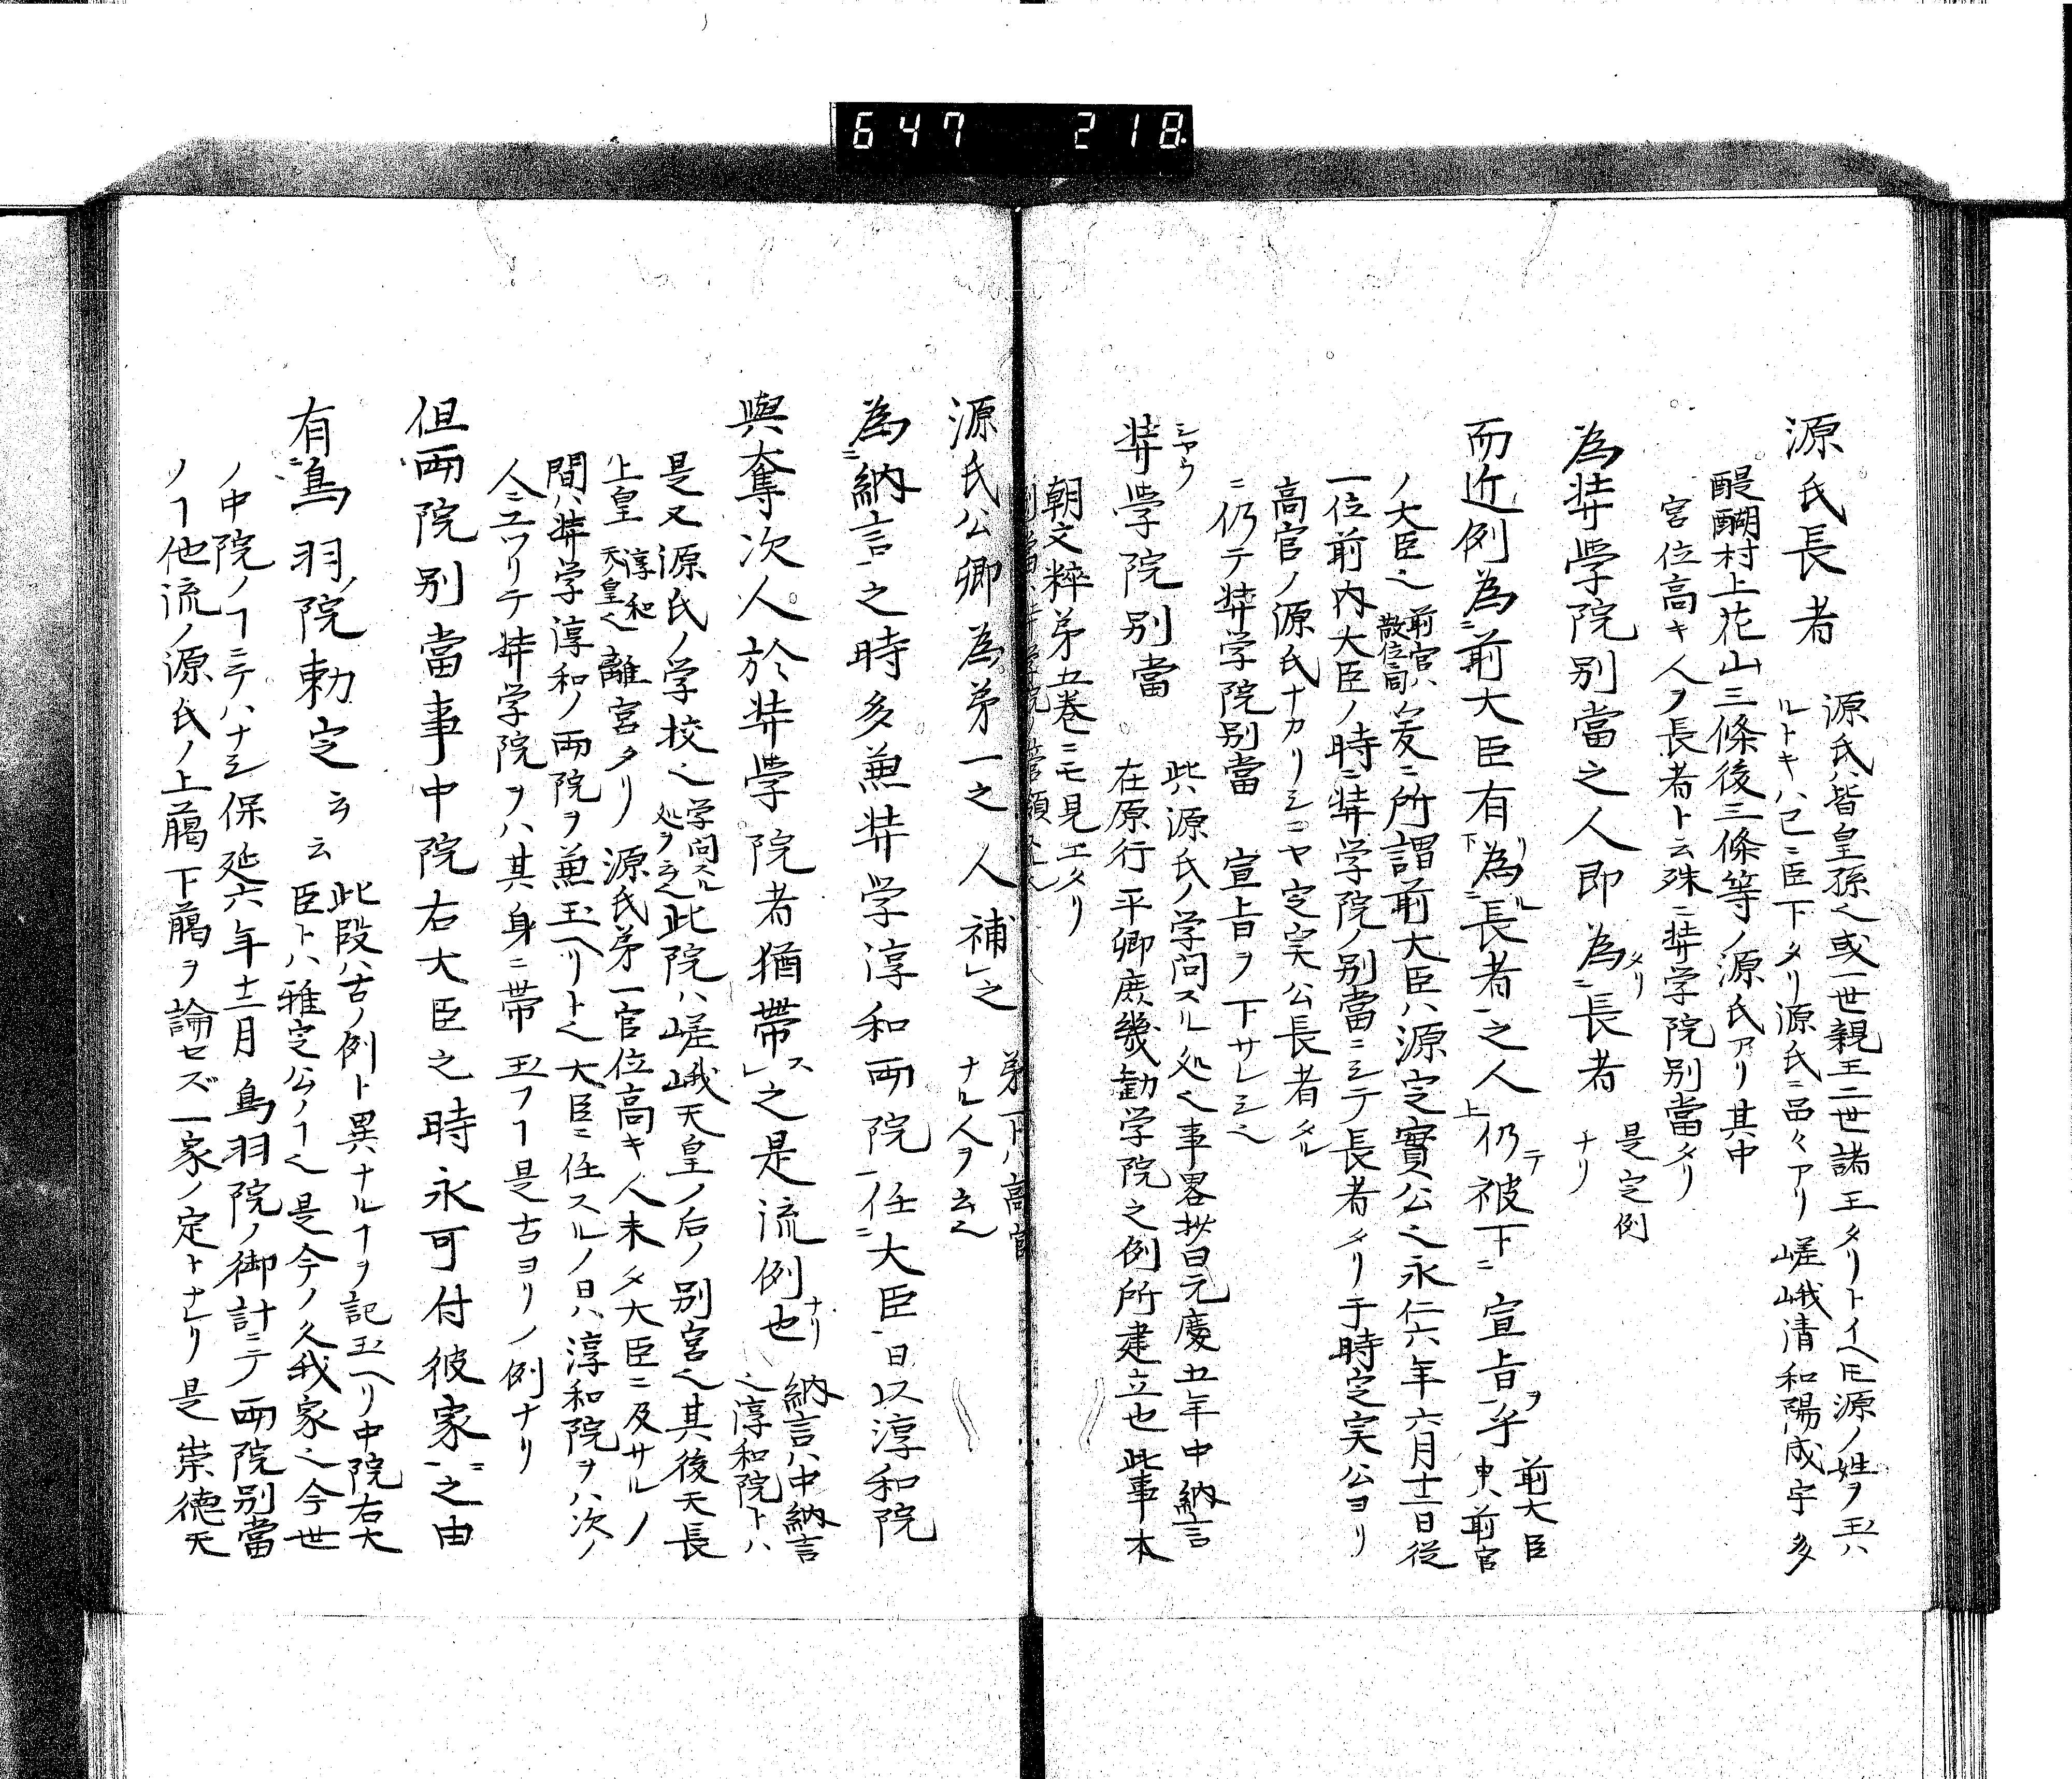 647 218
源氏長者
源氏ハ皆皇孫也或一世親王二世諸王タリトイヘ𪜈源ノ姓ヲ玉ハ
ルトキハ已ニ臣下タリ源氏ニ品々アリ嵯峨清和陽成宇多
醍醐村上花山三條後三條等ノ源氏アリ其中
官位高キ人ヲ長者ト云殊ニ弉学院別當タリ
為弉学院別當之人即為長者タリ
是定例
ナリ
而近例為前大臣有為長者之人仍テ被下宣旨ヲ乎
前大臣
ノ大臣也前官ハ
散位ニ同
爰ニ所謂前大臣ハ源定實公也永仁六年六月十二日従
一位前内大臣ノ時ニ弉学院ノ別當ニシテ長者タリ于時定実公ヨリ
高官ノ源氏ナカリシニヤ定実公長者タル
ニ仍テ弉学院別當宣旨ヲ下サレシ也
弉学院別當
シヤウ
此ハ源氏ノ学問スル処也事畧抄曰元慶五年中納言
在原行平卿庶幾勧学院之例所建立也此事本
朝文粹第五巻ニモ見エタリ
源氏公卿為第一之人補之
ナル人ヲ云也
為納言之時多兼弉学淳和両院任大臣日以淳和院
與奪次人於弉学院者猶帯ス之是流例也ナリ
納言ハ中納言
也淳和院トハ
是又源氏ノ学校也学問スル
処ヲ云也
此院ハ嵯峨天皇ノ后ノ別宮也其後天長
上皇淳和
天皇也
離宮タリ源氏第一官位高キ人未タ大臣ニ及サルノ
間ハ弉学淳和ノ両院ヲ兼玉ヘリト也大臣ニ任スルノ日ハ淳和院ヲハ次ノ
人ニユツリテ弉学院ヲハ其身ニ帯玉フヿ是古ヨリノ例ナリ
但両院別當事中院右大臣之時永可付彼家之由
有鳥羽ノ院勅定云云
此段ハ古ノ例ト異ナルヿヲ記玉ヘリ中院右大
臣トハ雅定公ノヿ也是今ノ久我家也今世
ノ中院ノヿニテハナシ保延六年十二月鳥羽院ノ御計ニテ両院別當
ノヿ他流ノ源氏ノ上﨟下﨟ヲ論セズ一家ノ定トナセリ是崇徳天